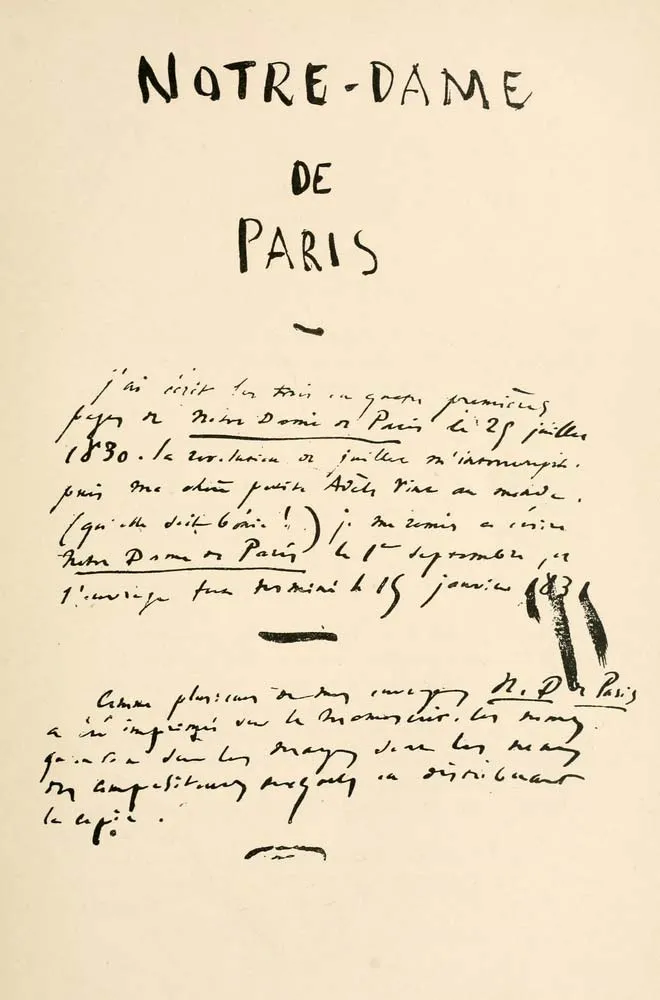 NOTRE-DAME
DE
PARIS
j'ai écrit les trois ou quatre premières
pages de Notre Dame de Paris le 25 juillet
1830. la révolution de juillet m'interrompit.
puis ma chère petite Adèle vint au monde.
(qu'elle soit bénie!) je me remis à écrire
Notre Dame de Paris le 1er septembre, et
l'ouvrage fut terminé le 15 janvier 1831
Comme plusieurs de mes ouvrages N. D de Paris
a été imprimé sur le manuscrit. les noms
qu'on voit dans les marges sont les noms
des compositeurs auxquels on distribuait
la copie.